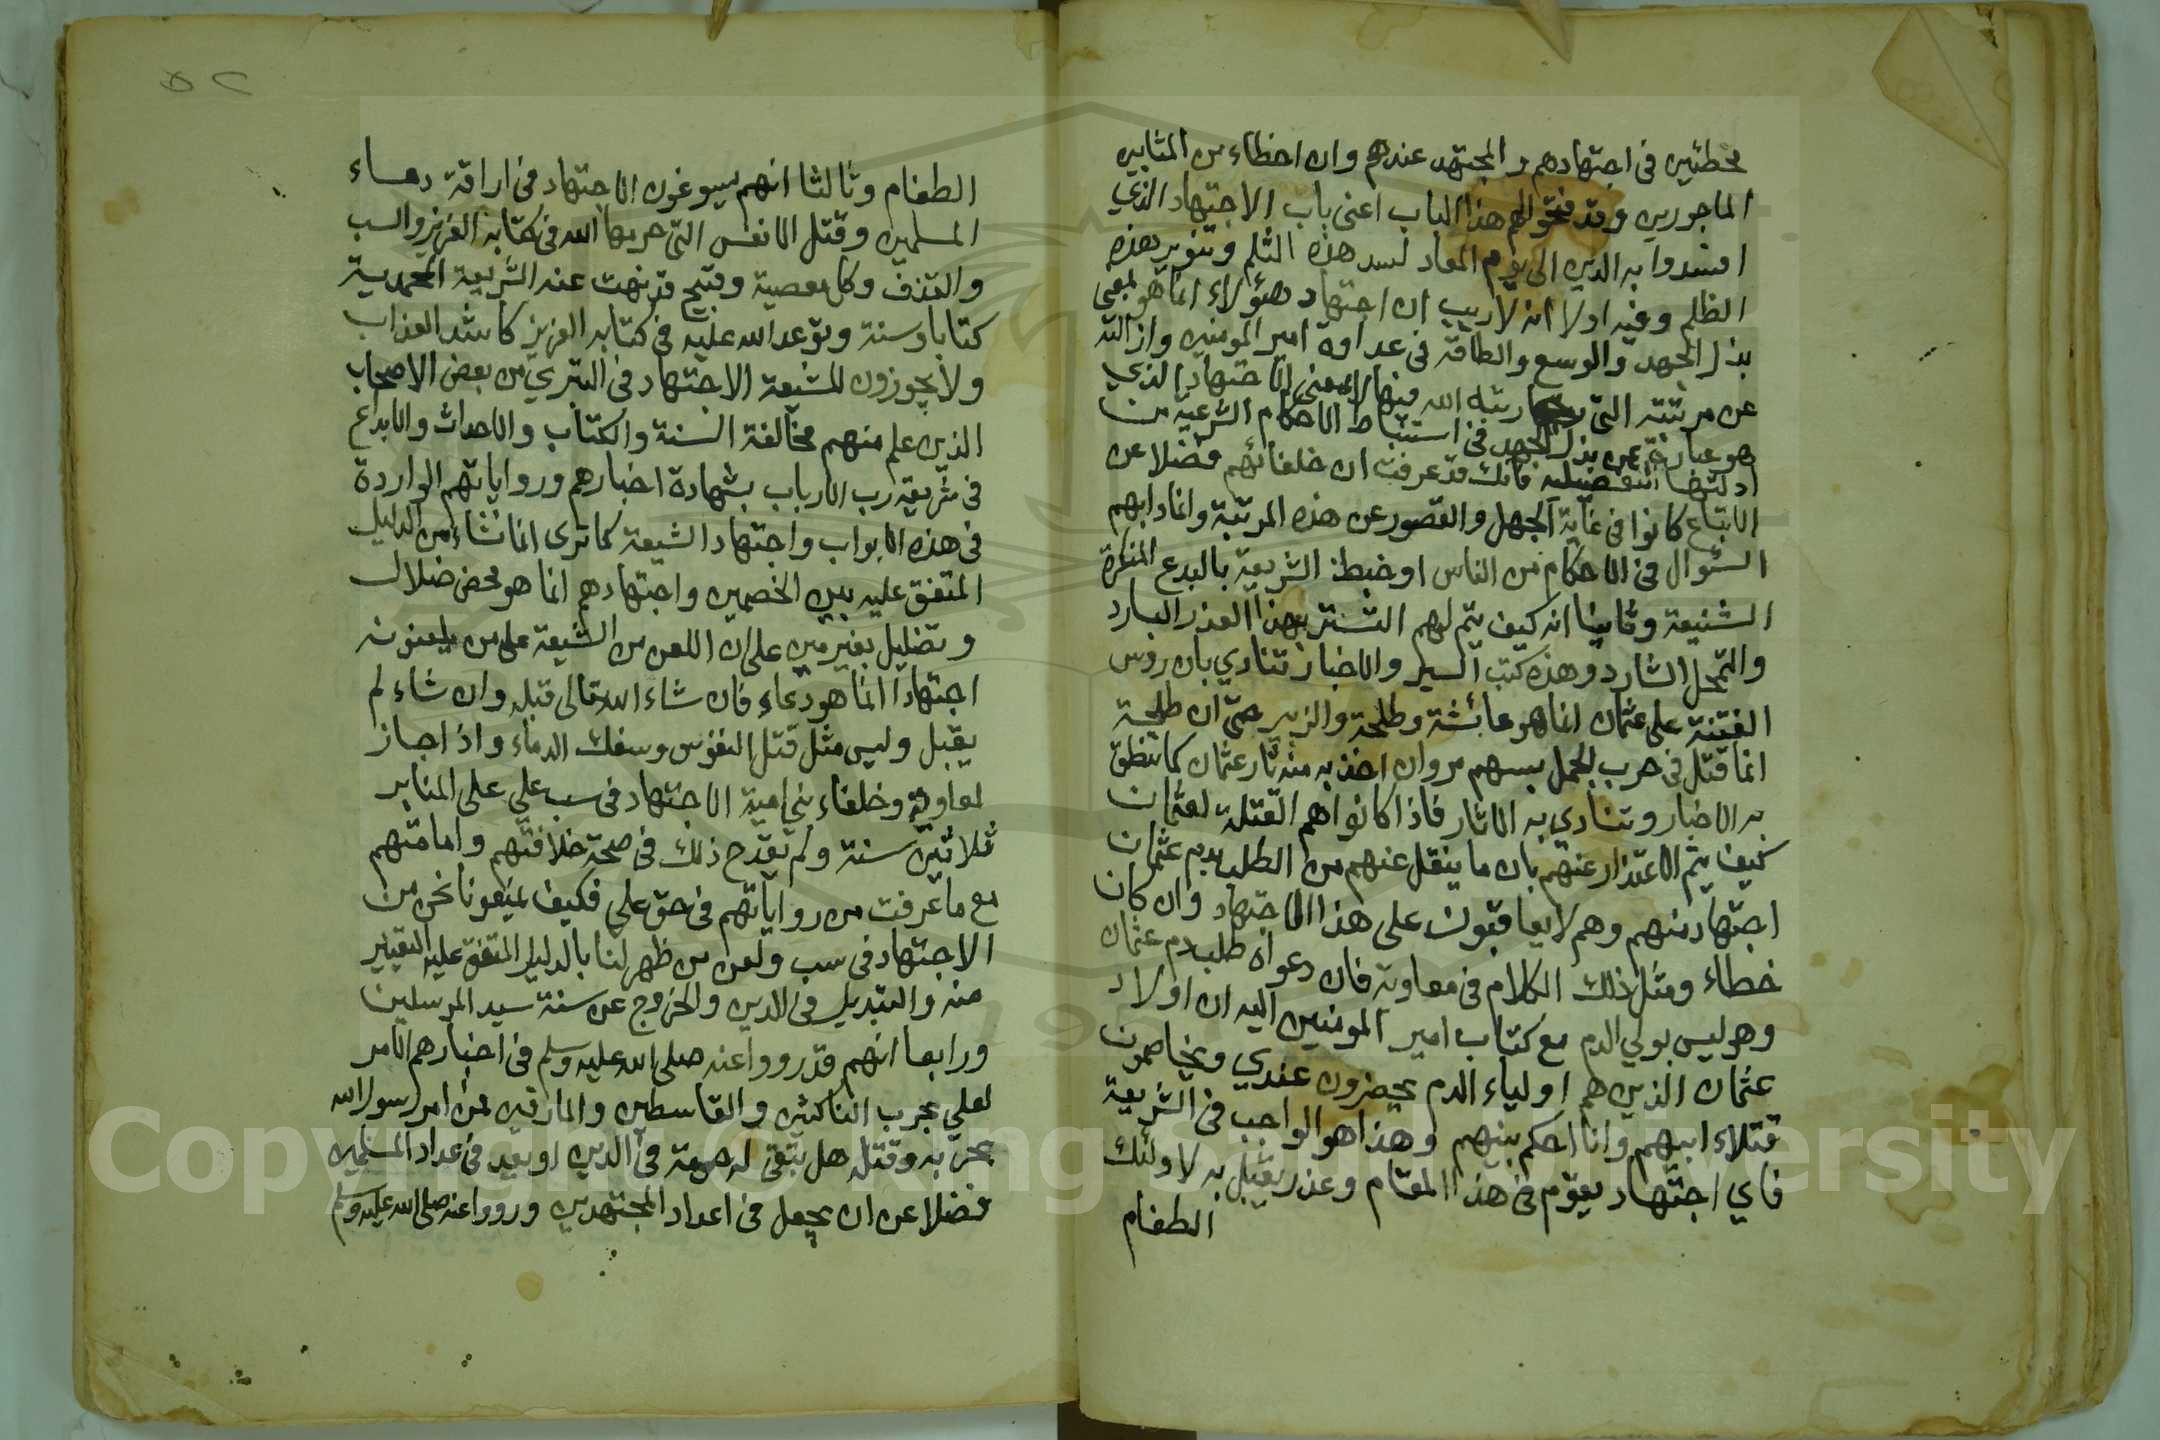 مخطئين في اجتهادهم والمجتهد عندهم وان اخطاء من المثابين
الماجورين وقد فتحوا لهم هذا الباب اعني باب الاجتهاد الذي
افسدوا به الدين الى يوم المعاد لسد هذه الثلم وتنوير هذه
الظلم وفيه اولا انه لا ريب ان اجتهاد هؤلاء انما هو بمعنى
بذل الجهد والوسع والطاقة في عداوة امير المومنين وازالته
عن مرتبته التي رتبه الله فيها لا بمعنى الاجتهاد الذي
هو عبارة عن بذل الجهد في استنباط الاحكام الشرعية من
ادلتها التفصيلية فانك قد عرفت ان خلفائهم فضلا عن
الاتباع كانوا في غاية الجهل والقصور عن هذه المرتبة وانما دابهم
السؤال في الاحكام من الناس او خبط الشريعة بالبدع المنكرة
الشنيعة وثانيا انه كيف يتم لهم التستر بهذا العذر البارد
والتمحل الشارد وهذه كتب السير والاخبار تنادي بان روس
الفتنة على عثمان انما هو عائشة وطلحة والزبير حتى ان طلحة
انما قتل في حرب الجمل بسهم مروان اخذ به منه ثار عثمان كما تنطق
به الاخبار وتنادي به الاثار فاذا كانوا هم القتلة لعثمان
كيف يتم الاعتذار عنهم بان ما ينقل عنهم من الطلب بدم عثمان
اجتهاد منهم وهم لا يعاقبون على هذا الاجتهاد وان كان
خطاء ومثل ذلك الكلام في معاوية فان دعواه طلب دم عثمان
وهو ليس بولي الدم مع كتاب امير المومنين اليه ان اولاد
عثمان الذين هم اولياء الدم يحضرون عندي ويخاصمون
قتلاء ابيهم وانا احكم بينهم وهذا هو الواجب في الشريعة
فاي اجتهاد يقوم في هذا المقام وعذر يقبل به لاولئك
الطغام
٥٢
الطغام وثالثا انهم يسوغون الاجتهاد في اراقة دماء
المسلمين وقتل الانفس التي حرمها الله في كتابه العزيز والسب
والقذف وكل معصية وقبيح قد نهت عنه الشريعة المحمدية
كتابا وسنة وتوعد الله عليه في كتابه العزيز كاشد العذاب
ولا يجوزون للشيعة الاجتهاد في التبري من بعض الاصحاب
الذين علم منهم مخالفة السنة والكتاب والاحداث والابداع
في شريعة رب الارباب بشهادة اخبارهم ورواياتهم الواردة
في هذه الابواب واجتهاد الشيعة كما ترى انما نشاء من الدليل
المتفق عليه بين الخصمين واجتهادهم انما هو محض ضلال
وتضليل بغير مين على ان اللعن من الشيعة على من يلعنونه
اجتهادا انما هو دعاء فان شاء الله تعالى قبله وان شاء لم
يقبل وليس مثل قتل النفوس وسفك الدماء واذا جاز
لمعاوية وخلفاء بني امية الاجتهاد في سب علي على المنابر
ثلاثين سنة ولم يقدح ذلك في صحة خلافتهم وامامتهم
مع ما عرفت من رواياتهم في حق علي فكيف يمنعونا نحن من
الاجتهاد في سب ولعن من ظهر لنا بالدليل المتفق عليه التغيير
منه والتبديل في الدين والخروج عن سنة سيد المرسلين
ورابعا انهم قد رووا عنه صلى الله عليه وسلم في اخبارهم الامر
لعلي بحرب الناكثين والقاسطين والمارقين فمن امر رسول الله
بحربه وقتله هل تبقى له حرمة في الدين او يعد في عداد المسلمين
فضلا عن ان يجعل في اعداد المجتهدين ورووا عنه صلى الله عليه وسلم
Copyright © King Saud University